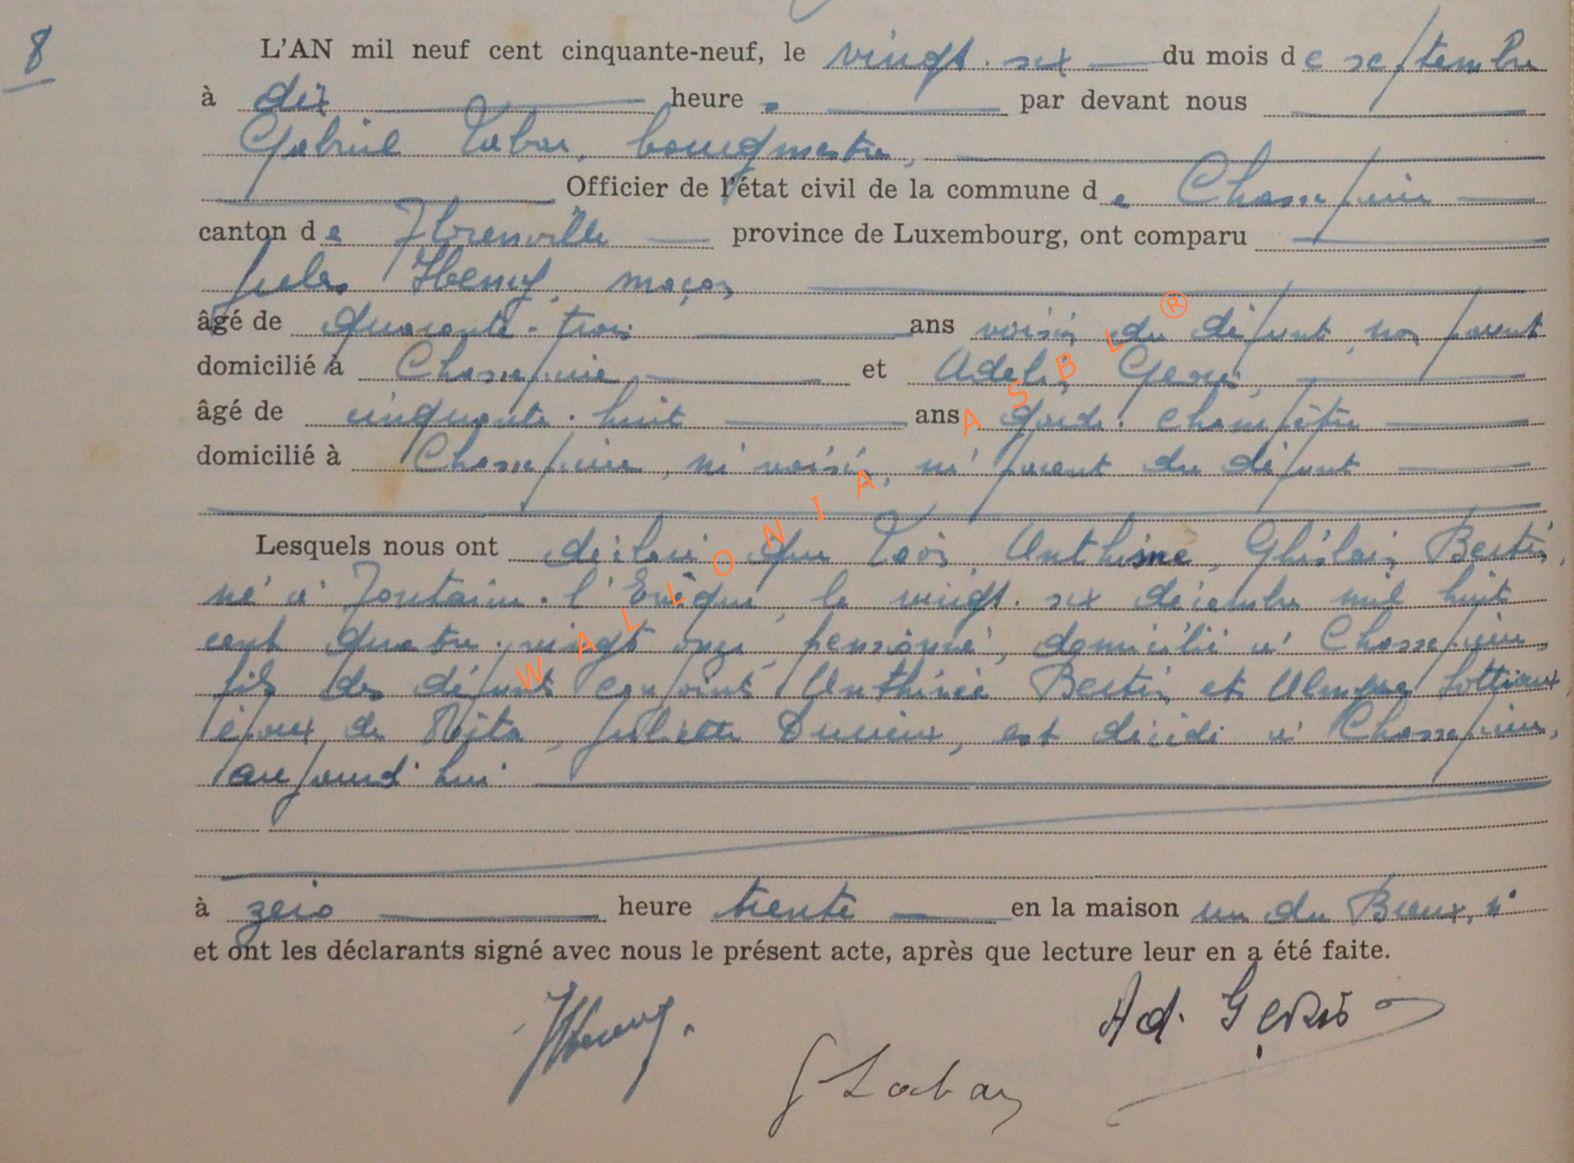 8
L'AN mil neuf cent cinquante-neuf, le vingt-six du mois de septembre
à dix heure s par devant nous
Gabriel Labar, bourgmestre,
Officier de l'état civil de la commune de Chassepierre
canton de Florenville province de Luxembourg, ont comparu
Jules Henry, maçon
âgé de quarante-trois ans voisin du défunt, non parent
domicilié à Chassepierre et Adelin
âgé de cinquante-huit ans garde champêtre
domicilié à Chassepierre, ni voisin, ni parent du défunt
Lesquels nous ont déclaré que Anthime, Ghislain Bertin,
né à Fontaine-l'Evêque, le vingt-six décembre mil huit
cent quatre-vingt onze, pensionné, domicilié à Chassepierre
fils des défunts conjoints Bertin et
époux de Juliette est décédé à Chassepierre,
aujourd'hui
à zéro heure trente en la maison
et ont les déclarants signé avec nous le présent acte, après que lecture leur en a été faite.
Henry.
Ad.
G Labar
WALLONIA ASBL ®